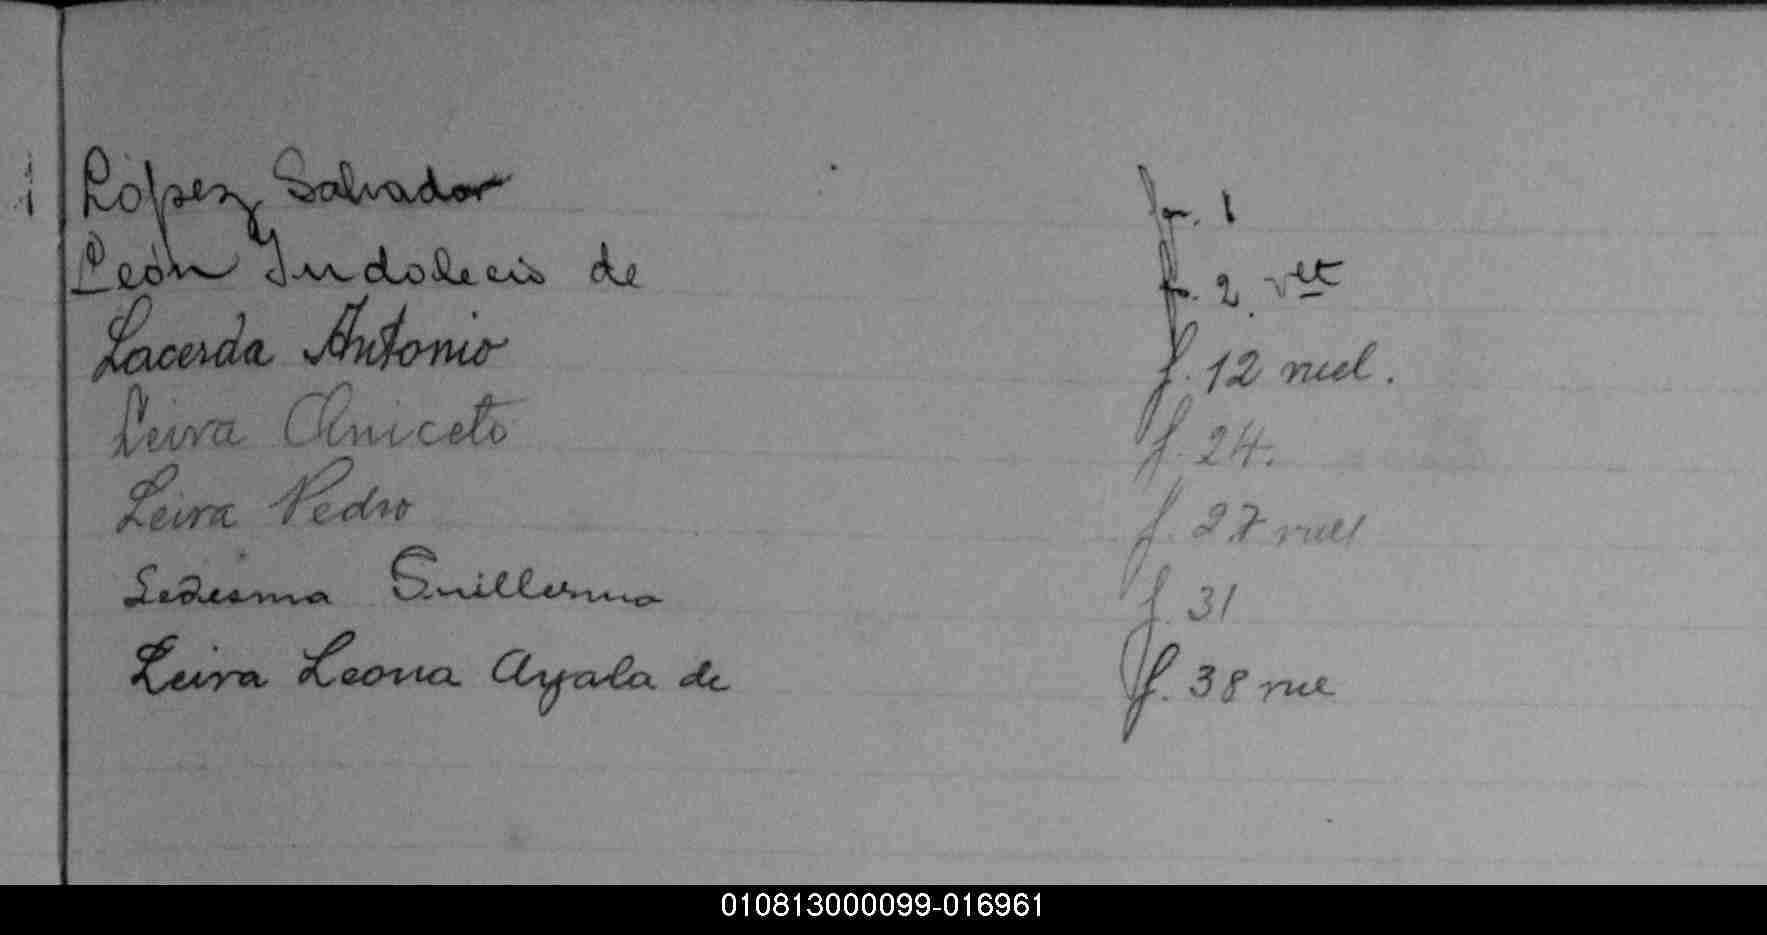 López Salvador fs. 1
León Indolecio de fs. 2 vlt
Lacerda Antonio f. 12 vuel.
Leiva Aniceto f. 24.
Leiva Pedro f. 27 vuel
Ledesma Guillermo f. 31
Leiva Leona Ayala de f. 38 vue
010813000099-016961